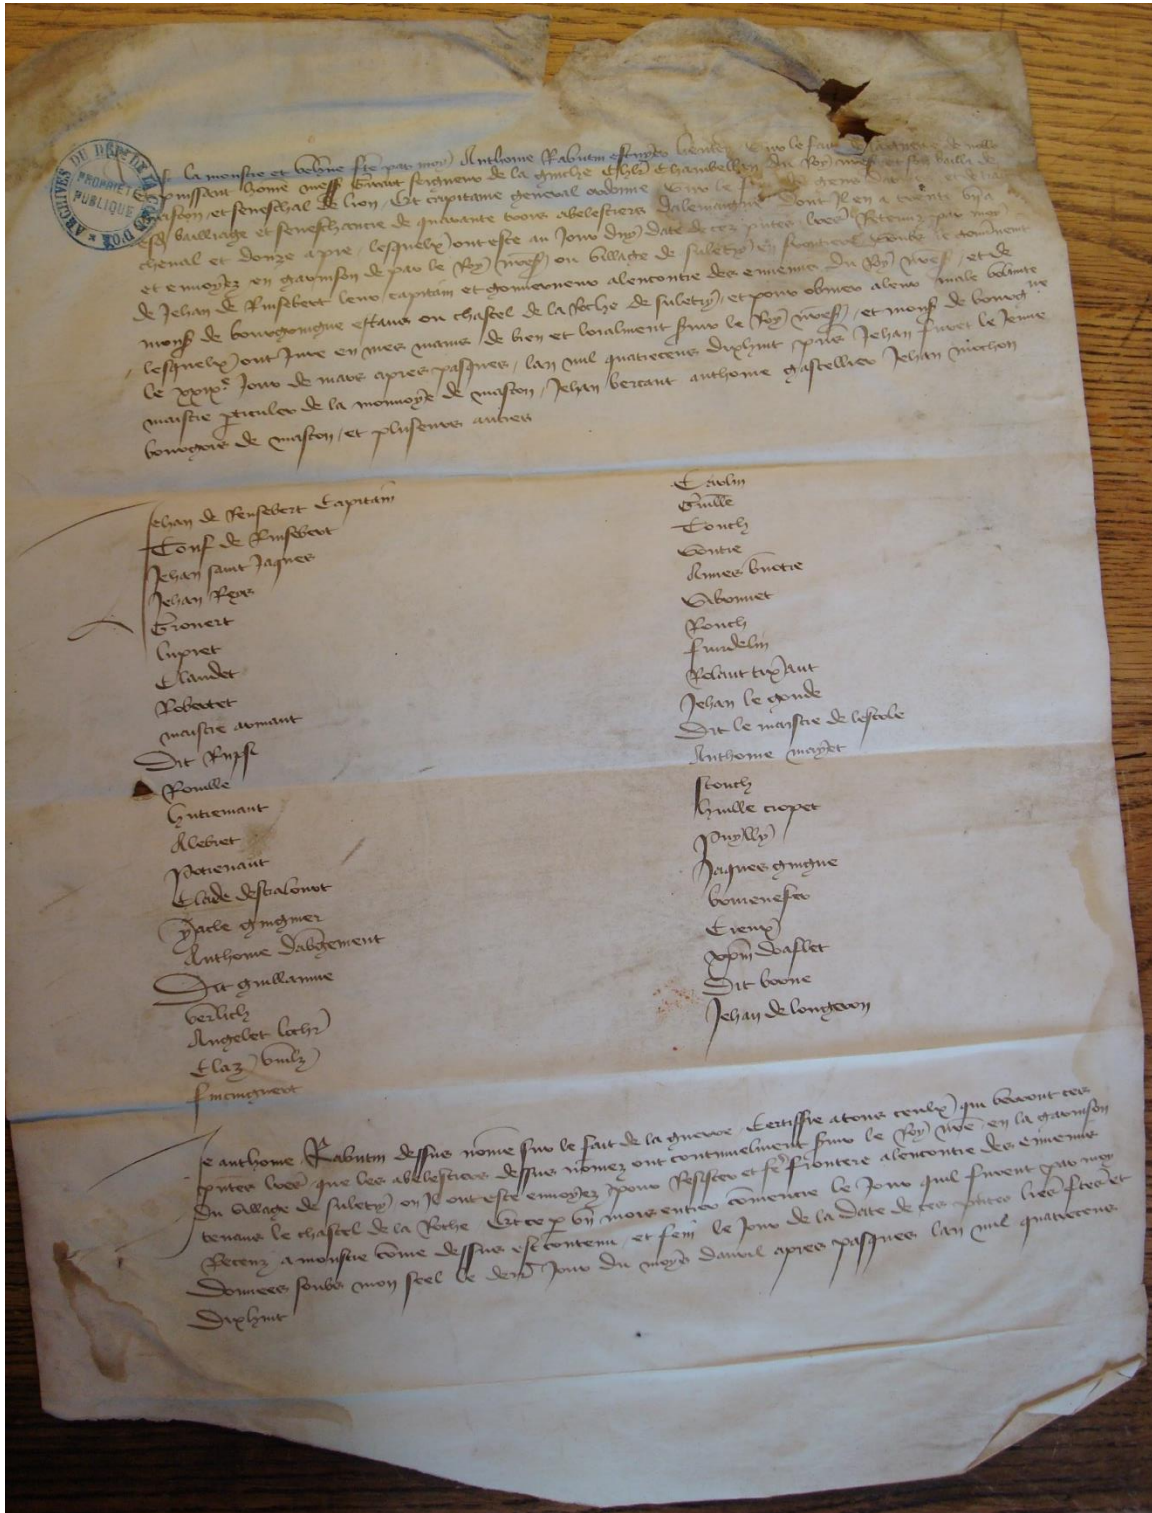 ARCHIVES DU DEPt DE LA COTE D'OR
PROPRIETE PUBLIQUE
la monstre et veue fte par moy Anthoine Rabutin escuier lieuten sur le fait de la guerre de noble
et puissant home mess Girart seigneur de la guiche chlr chambellan du Roy nres et son bailli de
mascon et seneschal de lion Et capitaine general ordonne sur le fait des gens darmes et de
esd bailliage et seneschaucie de quarante trois abelestiers dalemaigne dont Il en a trente un a
cheval et douze a pie lesquelx ont este au Jour duy date de cez pntes lres Retenuz par moy
et envoyez en garnison de par le Roy nres ou village de suletry en frontiere soubz le gouvnement
de Jehan de Rinsebert leur capitain et gouverneur alencontre des ennemis du Roy nres et de
mons de bourgoingne estans ou chastel de la Roche de suletry et pour obvier a leur male volunte
lesquelx ont Jure en mes mains de bien et loialment suir le Roy nres et mons de bourgne
le xxixe Jour de mars apres pasques lan mil quatrecens dixhuit pns Jehan furet le Jeune
maistre pticuler de la monnoye de mascon Jehan bercant anthoine gastellier Jehan michon
bourgois de mascon et pluseurs autres
Jehan de Rensebert Capitain
Conf de Rinsebert
Jehan saint Jaques
Jehan Roos
Gronert
lupret
Claudet
Robertet
maistre armant
Dit Rupsi
Roulle
hutremant
Alebret
Petrenant
Clade descalourt
yacle guignier
Anthoine dabgement
Dit guillaume
verlich
Angelet lochr
Claz vmlz
fincinguert
Carolin
Guille
Conch
Contre
Annes vnetre
Gibonnet
Ronch
furidelin
Rolant trixant
Jehan le gonde
Dit le maistre de lescole
Anthoine mayet
stonch
huille cropet
puylly
Jaques guigue
bomenescer
Crenx
xpin doaflet
Dit borne
Jehan de longeron
Je anthoine Rabutin dessus nome sur le fait de la guerre Certiffie a tous ceulx qui verront ces
pntes lres que les abelestiers dessus nomez ont continuelment suir le Roy nre en la garnison
du village de suletry ou Il ont este envoyez pour Resister et fe frontiere alencontre des ennemis
tenans le chastel de la Roche Et ce p un mois entier comencie le Jour quil furent par moy
Receuz a monstre come dessus est contenu et feni le Jour de la date de ces pntes lres ftes et
donnees soubz mon scel le derr Jour du moys davril apres pasques lan mil quatrecens
Dixhuit